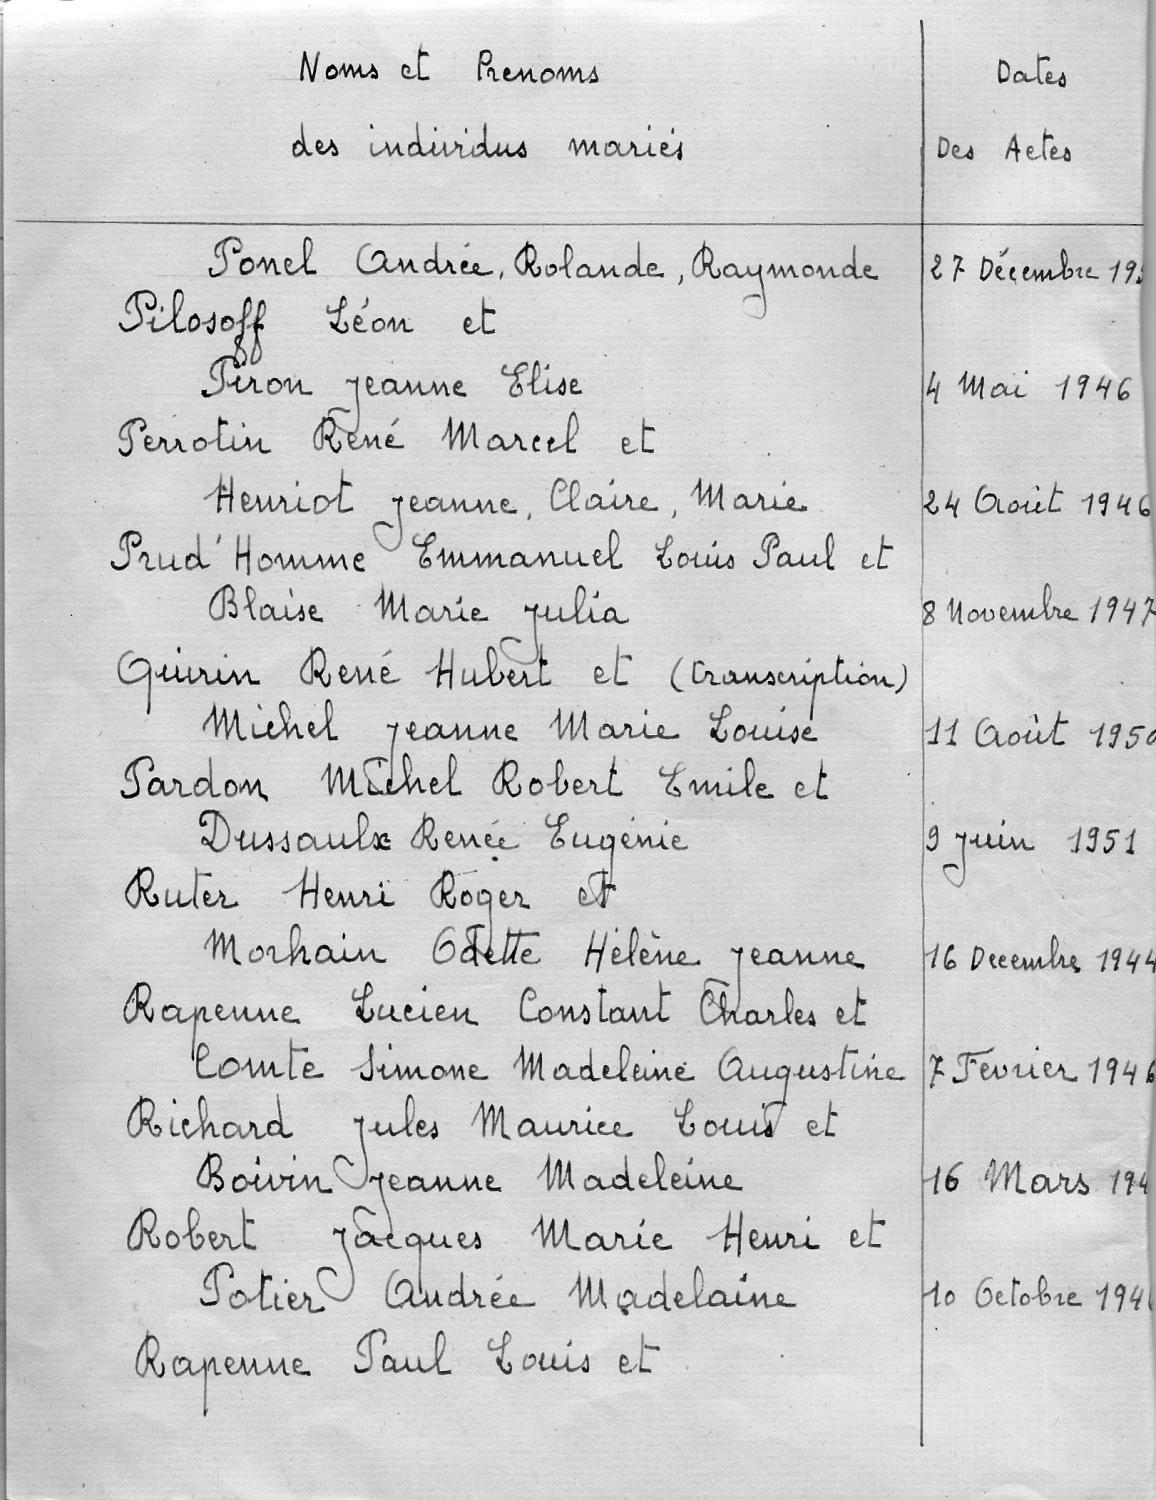 Noms et Prenoms Dates
des individus mariés Des Actes
Ponel Andrée, Rolande, Raymonde 27 Décembre
Pilosoff Léon et
Piron Jeanne Elise 4 Mai 1946
Perrotin René Marcel et
Henriot Jeanne, Claire, Marie 24 Août 1946
Prud'Homme Emmanuel Louis Paul et
Blaise Marie Julia 8 Novembre 1947
Quirin René Hubert et (transcription)
Michel Jeanne Marie Louise 11 Août 1950
Pardon Michel Robert Emile et
Dussaulx Renée Eugénie 9 Juin 1951
Ruter Henri Roger et
Morhain Odette Hélène Jeanne 16 Decembre 1944
Rapenne Lucien Constant Charles et
Comte Simone Madeleine Augustine 7 Fevrier 1946
Richard Jules Maurice Louis et
Boivin Jeanne Madeleine 16 Mars 194
Robert Jacques Marie Henri et
Potier Andrée Madelaine 10 Octobre 194
Rapenne Paul Louis et